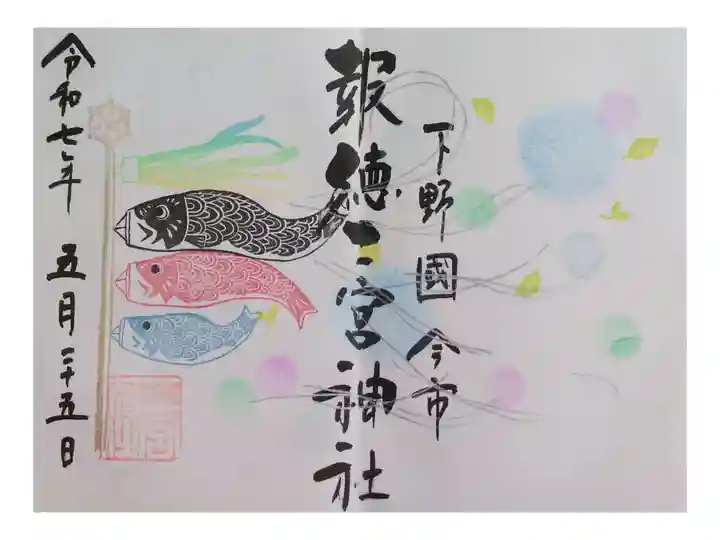 下野國 今市
報徳二宮神社
令和七年 五月二十五日